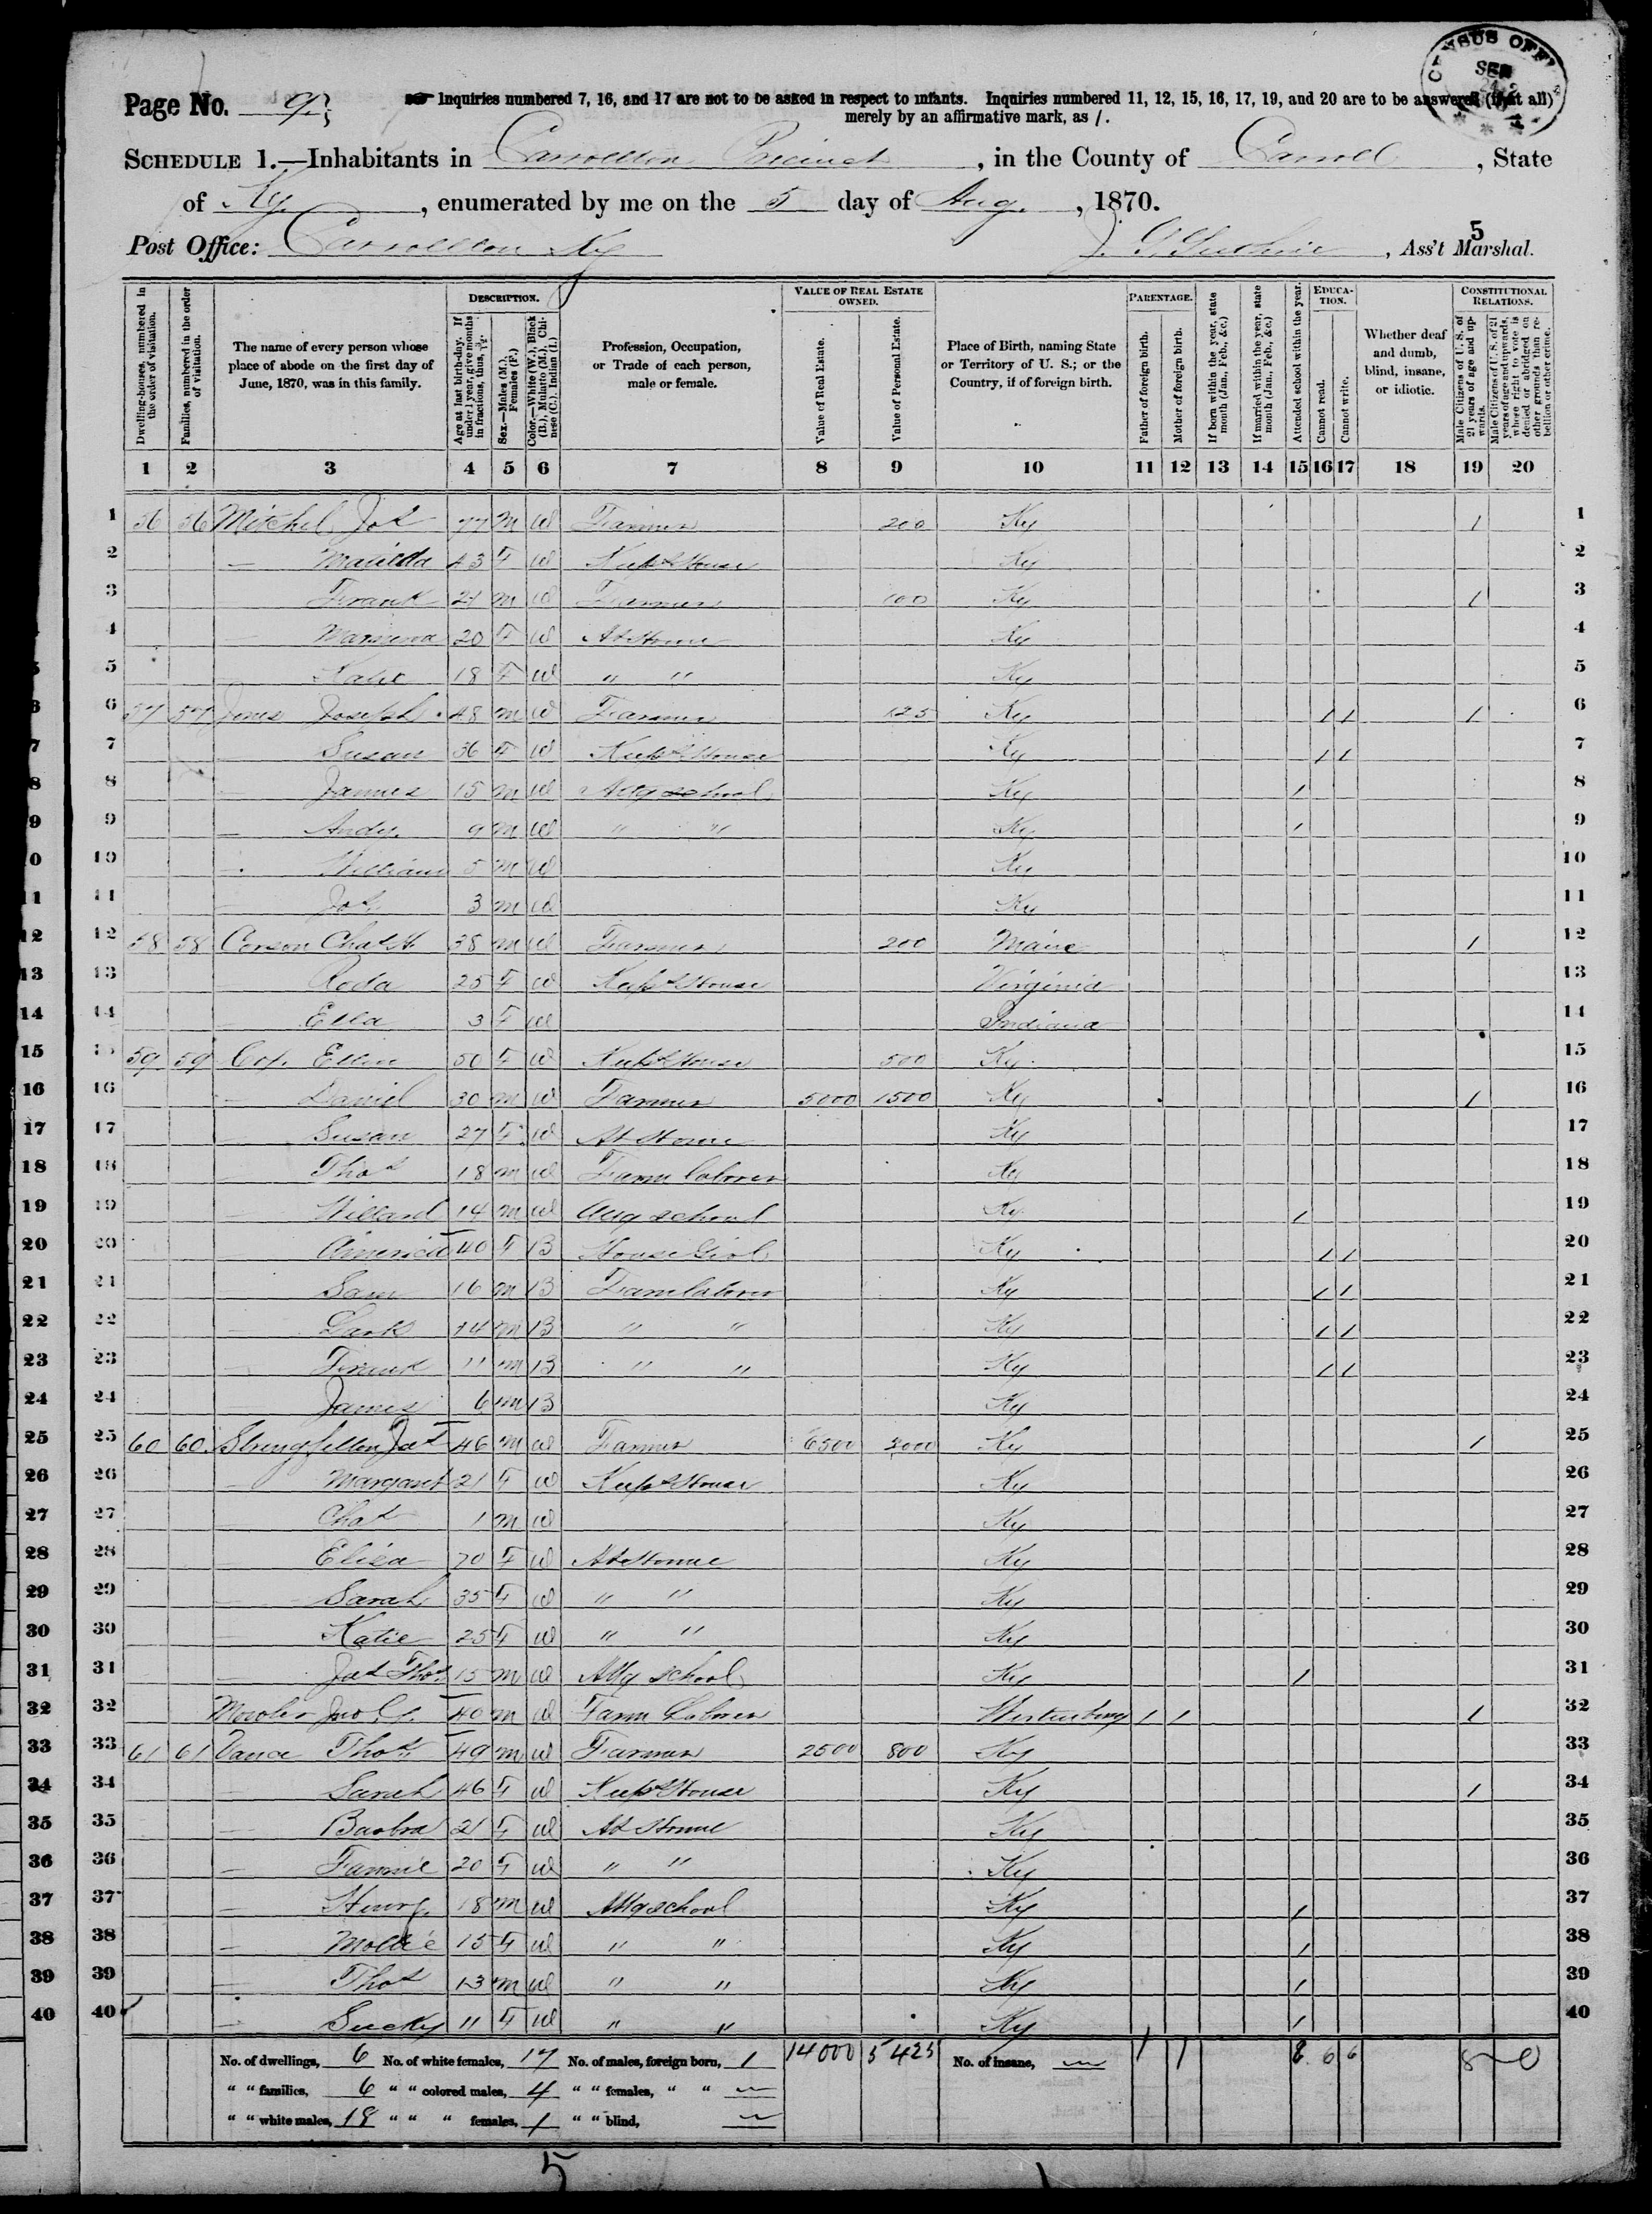 Page No. 9
Inquiries numbered 7, 16, and 17 are not to be asked in respect to infants. Inquiries numbered 11, 12, 15, 16, 17, 19, and 20 are to be answered (if at all)
merely by an affirmative mark, as /.
CENSUS OFF SEP
SCHEDULE 1.—Inhabitants in Carrollton Precinct, in the County of Carroll, State
of Ky., enumerated by me on the 5 day of Aug., 1870.
5
Post Office: Carrollton Ky J. Guthrie, Ass't Marshal.
Dwelling-houses, numbered in the order of visitation.
Families, numbered in the order of visitation.
The name of every person whose place of abode on the first day of June, 1870, was in this family.
DESCRIPTION.
Age at last birth-day. If under 1 year, give months in fractions, thus, 3/12.
Sex.—Males (M.), Females (F.)
Color.—White (W.), Black (B.), Mulatto (M.), Chinese (C.), Indian (I.)
Profession, Occupation, or Trade of each person, male or female.
VALUE OF REAL ESTATE OWNED.
Value of Real Estate.
Value of Personal Estate.
Place of Birth, naming State or Territory of U. S.; or the Country, if of foreign birth.
PARENTAGE.
Father of foreign birth.
Mother of foreign birth.
If born within the year, state month (Jan., Feb., &c.)
If married within the year, state month (Jan., Feb., &c.)
Attended school within the year.
EDUCATION.
Cannot read.
Cannot write.
Whether deaf and dumb, blind, insane, or idiotic.
CONSTITUTIONAL RELATIONS.
Male Citizens of U. S. of 21 years of age and upwards.
Male Citizens of U. S. of 21 years of age and upwards, whose right to vote is denied or abridged on other grounds than rebellion or other crime.
1 2 3 4 5 6 7 8 9 10 11 12 13 14 15 16 17 18 19 20
1 56 56 Mitchel Jos 77 M W Farmer 200 Ky / 1
2 — Matilda 43 F W Keeps House Ky 2
3 Frank 21 M W Farmer 100 Ky / 3
4 — 20 F W At Home Ky 4
5 Katie 18 F W " " Ky 5
6 57 57 Jones Joseph 48 M W Farmer 125 Ky / / / 6
7 Susan 36 F W Keeps House Ky / / 7
8 — James 15 M W Attg school Ky / 8
9 — Andy 9 M W " " Ky / 9
10 William 5 M W Ky 10
11 — Jos 3 M W Ky 11
12 58 58 Corson Chas H. 38 M W Farmer 200 Maine / 12
13 — Roda 25 F W Keeps House Virginia 13
14 — Ella 3 F W Indiana 14
15 59 59 Cox Ellen 50 F W Keeps House 500 Ky 15
16 — Daniel 30 M W Farmer 5000 1500 Ky / 16
17 — Susan 27 F W At Home Ky 17
18 — Thos 18 M W Farm Laborer Ky 18
19 — Willard 14 M W Attg school Ky / 19
20 — America 40 F B House Girl Ky / / 20
21 — Sam 16 M B Farm Laborer Ky / / 21
22 — 14 M B " " Ky / / 22
23 — Frank 11 M B " " Ky / / 23
24 — James 6 M B Ky 24
25 60 60 Stringfellow Jas 46 M W Farmer 6500 2000 Ky / 25
26 — Margaret 21 F W Keeps House Ky 26
27 — Chas 1 M W Ky 27
28 — Eliza 70 F W At Home Ky 28
29 — Sarah 35 F W " " Ky 29
30 — Katie 25 F W " " Ky 30
31 — Jas Thos 15 M W Attg school Ky / 31
32 Jno G. 40 M W Farm Laborer Wurtemburg / / / 32
33 61 61 Vance Thos 49 M W Farmer 2500 800 Ky 33
34 — Sarah 46 F W Keeps House Ky / 34
35 — Barbra 21 F W At Home Ky 35
36 — Fannie 20 F W " " Ky 36
37 — Henry 18 M W Attg school Ky / 37
38 — Mollie 15 F W " " Ky / 38
39 — Thos 13 M W " " Ky / 39
40 — Sucky 11 F W " " Ky / 40
No. of dwellings, 6 No. of white females, 17 No. of males, foreign born, 1 14000 5425 No. of insane, — 1 1 8 6 6 8 0
" " families, 6 " " colored males, 4 " " females, " " —
" " white males, 18 " " " females, 1 " " blind, —
5